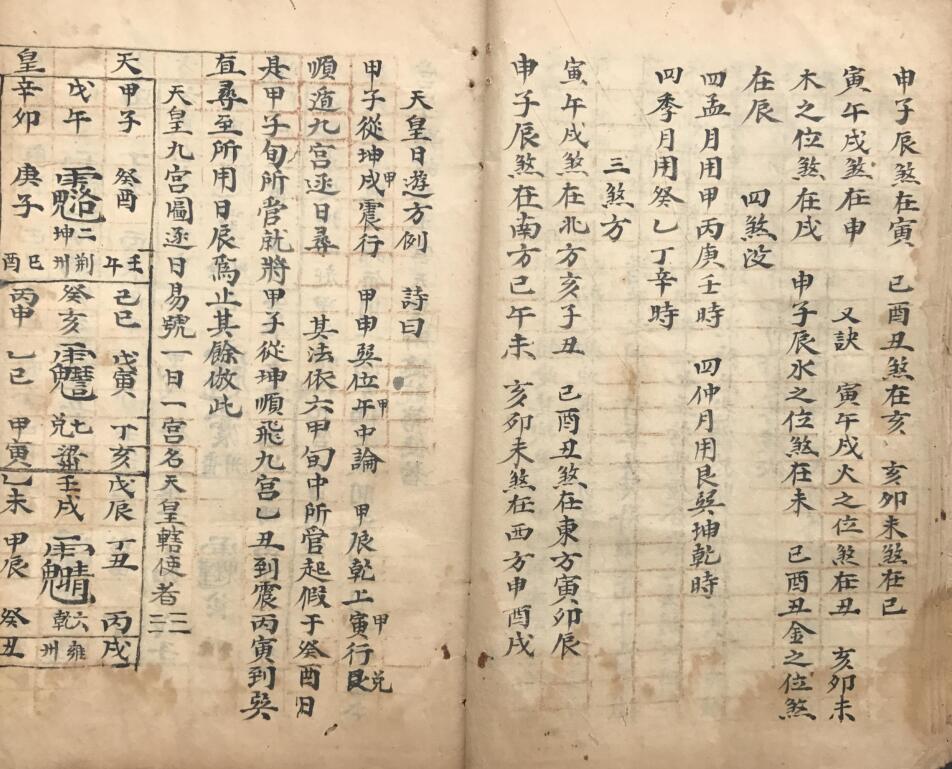 申子辰煞在寅　巳酉丑煞在亥　亥卯未煞在巳
寅午戌煞在申　又訣　寅午戌火之位煞在丑　亥卯未
木之位煞在戌　申子辰水之位煞在未　巳酉丑金之位煞
在辰　四煞没
四孟月用甲丙庚壬時　四仲月用艮巽坤乾時
四季月用癸乙丁辛時
三煞方
寅午戌煞在北方亥子丑　巳酉丑煞在東方寅卯辰
申子辰煞在南方巳午未　亥卯未煞在西方申酉戌
天皇日遊方例　詩曰
甲子從坤戌甲震行　甲申巽位午甲中論　甲辰乾上寅甲行艮兑
順遁九宫逐日尋　其法依六甲旬中所管起假于癸酉日
是甲子旬所管就將甲子從坤順飛九宫乙丑到震丙寅到巽
直尋至所用日辰爲止其餘倣此
天皇九宫圖逐日易號一日一宫名天皇轄使者
天　甲子　癸酉　壬午
戊午　坤二　荆州
皇　辛卯　庚子　巳酉
己巳　戊寅　丁亥
癸亥　兑七　梁
丙申　乙巳　甲寅
戊辰　丁丑　丙戌
壬戌　乾六　雍州
乙未　甲辰　癸丑